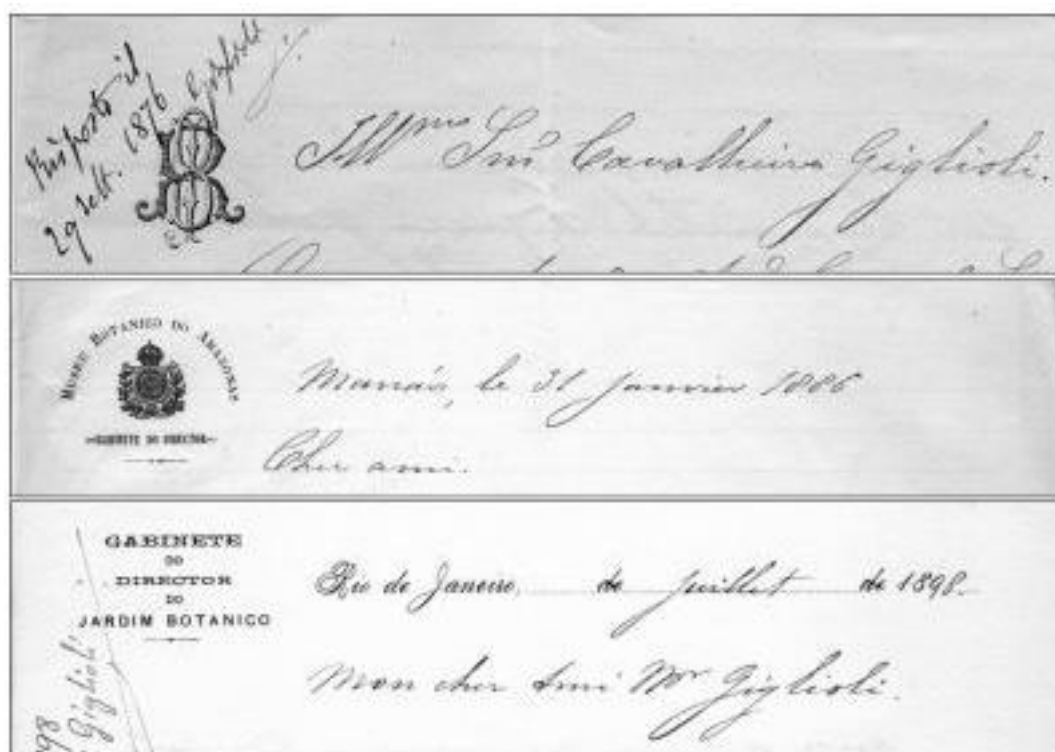 Risposto il
29 Sett. 1876
Illmo Snr Cavalheiro Giglioli.
MUSEU BOTANICO DO AMAZONAS
GABINETE DO DIRECTOR
Manáos, le 31 janvier 1886
Cher ami.
GABINETE
DO
DIRECTOR
DO
JARDIM BOTANICO
Rio de Janeiro, de juillet de 1898.
Mon cher Ami Mr Giglioli.
98
Giglioli